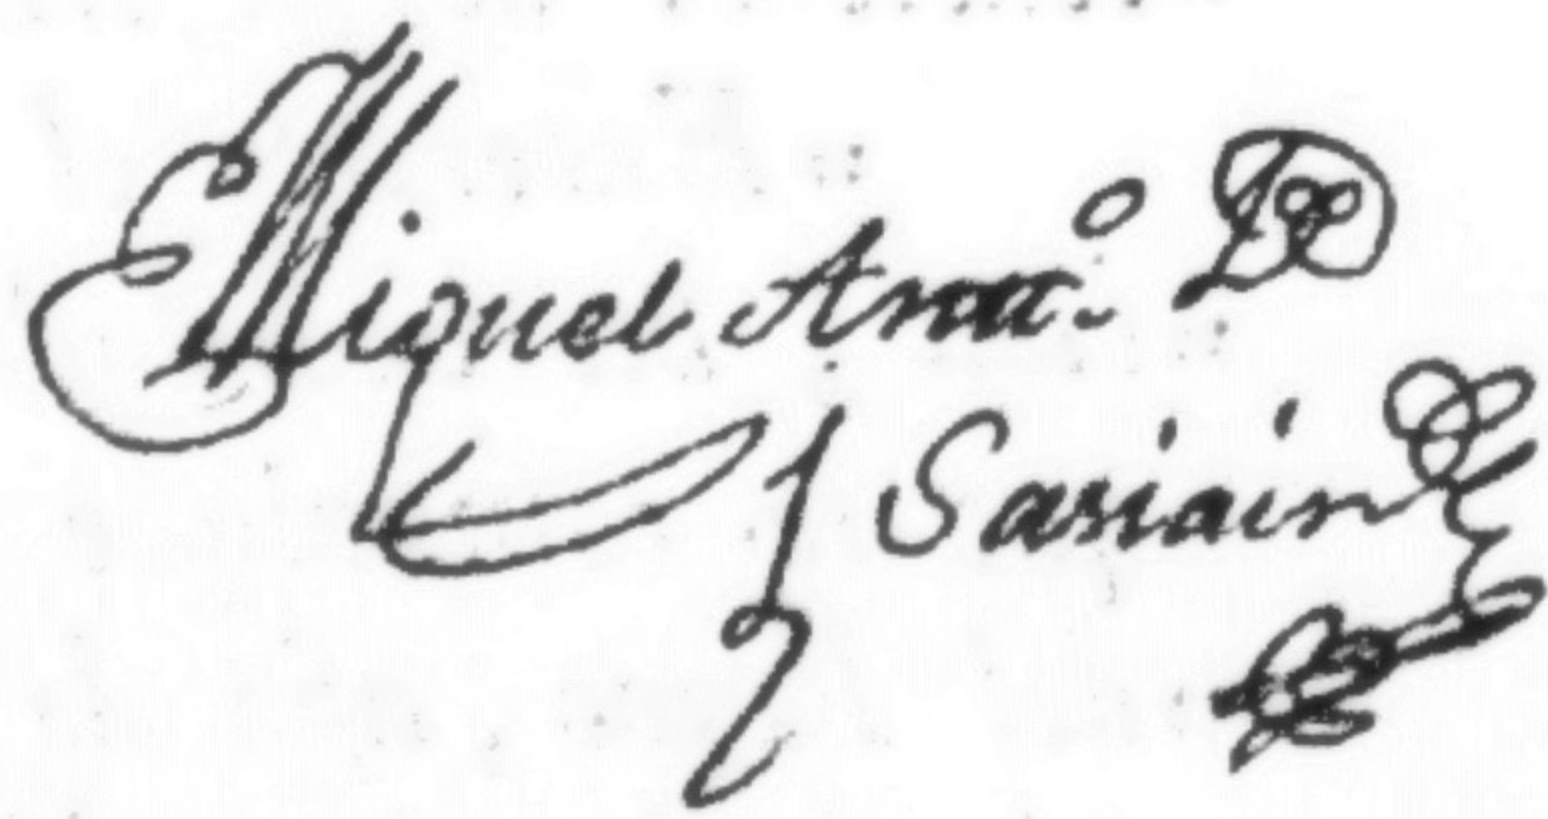 Miguel Antt.º De
Sariain